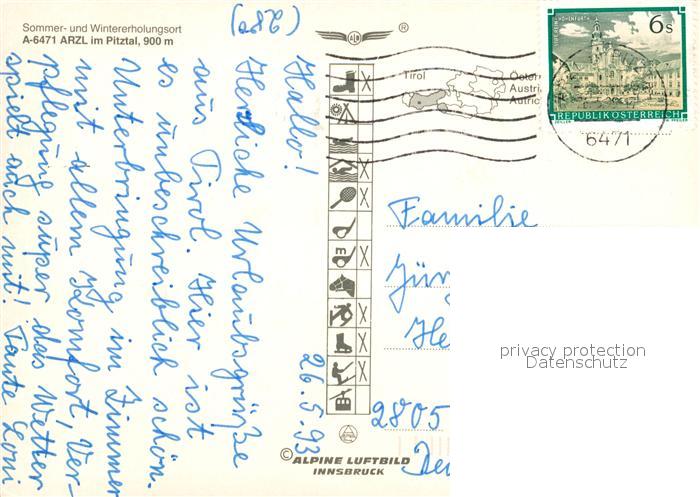 Sommer- und Wintererholungsort
A-6471 ARZL im Pitztal, 900 m
(280)
26.5.93
Hallo!
Herzliche Urlaubsgrüße
aus Tirol. Hier ist
es unbeschreiblich schön.
Unterbringung im Zimmer
mit allem Komfort! Ver-
pflegung super, das Wetter
spielt auch mit! Tante Loni
ALN
®
Tirol
Öster
Austri
Autric
STIFT REIN-HOHENFURTH
6 S
REPUBLIK ÖSTERREICH
6471
Familie
Jür
He
2805
Deu
privacy protection
Datenschutz
© ALPINE LUFTBILD
INNSBRUCK